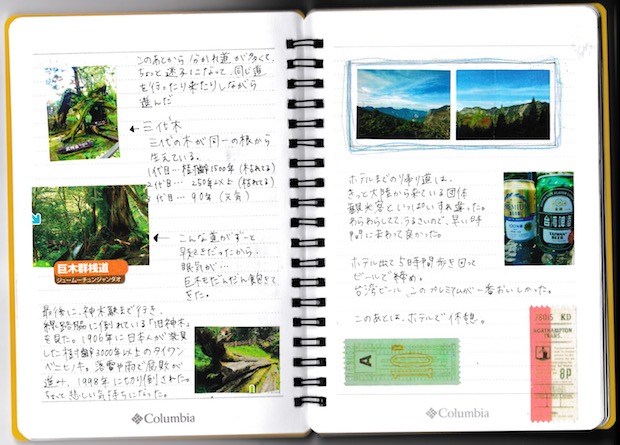 このあとから分かれ道が多くて、
ちょっと迷子になって、同じ道
を行ったり来たりしながら
進んだ
← 三代木
三代の木が同一の根から
生えている。
1代目…樹齢1500年(枯れてる)
2代目…250年以上(枯れてる)
3代目…90年(元気)
← こんな道がずーっと
早起きだったから
眠気が…
巨木もだんだん飽きて
きた。
巨木群桟道
ジュームーチュンジャンダオ
最後に、神木駅まで行き、
線路脇に倒れている「旧神木」
を見た。1906年に日本人が発見
した樹齢3000年以上のタイワン
ベニヒノキ。落雷や雨で腐敗が
進み、1998年に切り倒された。
ちょっと悲しい気持ちになった。
Columbia
ホテルまでの帰り道は、
きっと大陸から来ている団体
観光客といっぱいすれ違った。
わらわらしてて、うるさいので、早い時
間に来れて良かった。
ホテル出て5時間歩き回って
ビールで締め。
台湾ビール、このプレミアムが一番おいしかった。
このあとは、ホテルで休憩。
PREMIUM
台灣啤酒
TAIWAN
BEER
A
KD
NORTHAMPTON
TRANS.
8p
Columbia